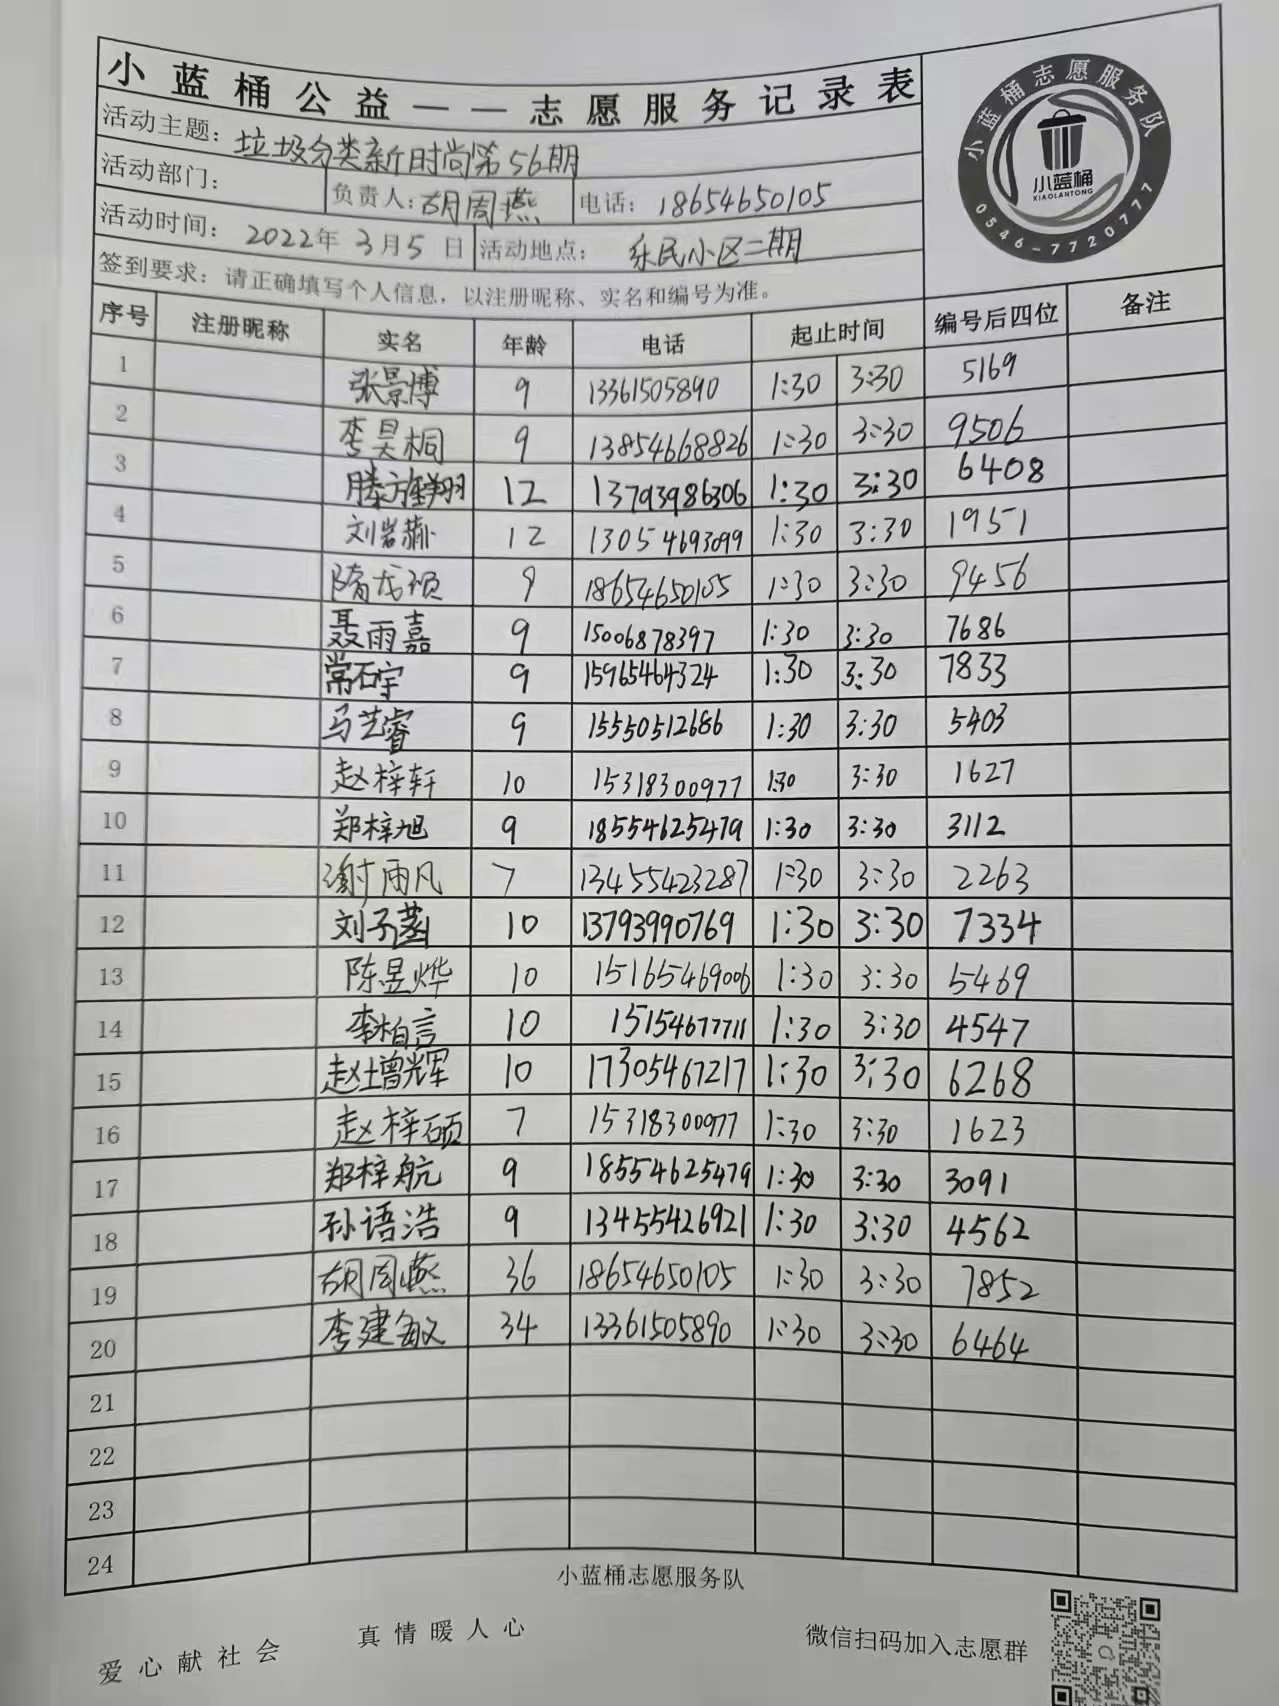 小蓝桶公益——志愿服务记录表
活动主题：垃圾分类新时尚第56期
活动部门： 负责人：胡周燕 电话：18654650105
活动时间：2022年3月5日 活动地点：乐民小区二期
签到要求：请正确填写个人信息，以注册昵称、实名和编号为准。
小蓝桶志愿服务队
小蓝桶
XIAOLANTONG
0546-7720777
序号 注册昵称 实名 年龄 电话 起止时间 编号后四位 备注
1 张景博 9 13361505890 1:30 3:30 5169
2 李昊桐 9 13854668826 1:30 3:30 9506
3 滕翔 12 13793986306 1:30 3:30 6408
4 刘岩 12 13054693099 1:30 3:30 1951
5 隋 9 18654650105 1:30 3:30 9456
6 聂雨嘉 9 15006878397 1:30 3:30 7686
7 常石宇 9 15965464324 1:30 3:30 7833
8 马艺睿 9 15550512686 1:30 3:30 5403
9 赵梓轩 10 15318300977 1:30 3:30 1627
10 郑梓旭 9 18554625479 1:30 3:30 3112
11 谢雨凡 7 13455423287 1:30 3:30 2263
12 刘子菡 10 13793990769 1:30 3:30 7334
13 陈昱烨 10 15165469006 1:30 3:30 5469
14 李柏言 10 15154677711 1:30 3:30 4547
15 赵增辉 10 17305467217 1:30 3:30 6268
16 赵梓硕 7 15318300977 1:30 3:30 1623
17 郑梓航 9 18554625479 1:30 3:30 3091
18 孙语浩 9 13455426921 1:30 3:30 4562
19 胡周燕 36 18654650105 1:30 3:30 7852
20 李建敏 34 13361505890 1:30 3:30 6464
21
22
23
24
小蓝桶志愿服务队
爱心献社会 真情暖人心 微信扫码加入志愿群